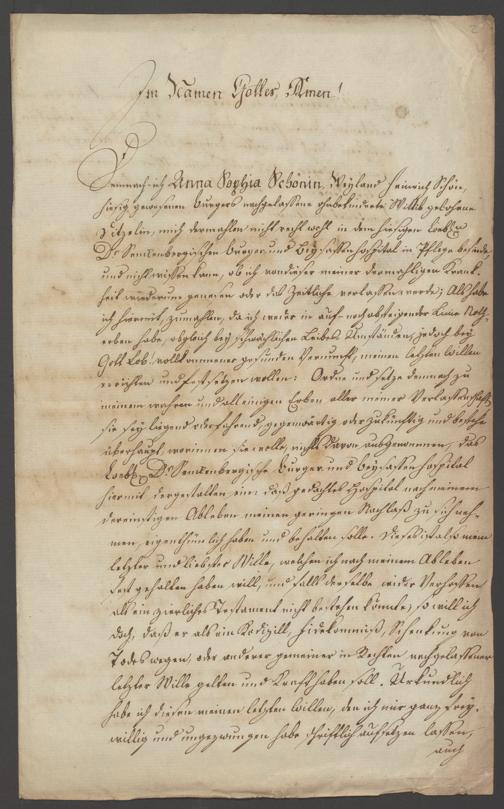 Im Namen Gottes, Amen!
Demnach ich Anna Sophia Schönin, Weyland Heinrich Schön,
hiesig gewesenen Burgers nachgelassene ohnbekinderte Wittib gebohrne
mich dermahlen nicht recht wohl in dem hiesigen löbl.
Dr. Senkenbergischen Burger und Beysassen Hospital in Pflege befinde,
und nicht wissen kann, ob ich von dieser meiner dermahligen Krank-
heit wiederum genesen oder das Zeitliche verlassen werde; Als habe
ich hiermit, zumahlen, da ich weder in auf- noch absteigender Linie Noth-
erben habe, obgleich bey schwächlichen Leibes Umständen, jedoch bey
Gott Lob! vollkommener gesunden Vernunft, meinen letzten Willen
errichten und festsetzen wollen: Ordne und setze demnach zu
meinem wahren und alleinigen Erben aller meiner Verlassenschaft,
sie sey liegend oder fahrend, gegenwärtig oder zukünftig und bestehe
überhaupt, worinnen sie wolle, nichts davon ausgenommen, das
löbl. Dr. Senkenbergische Burger und Beysassen Hospital
hiermit dergestalten ein: daß gedachtes Hospital nach meinem
dereinstigen Ableben meinen geringen Nachlaß zu sich neh-
men, eigenthümlich haben und behalten solle. Dieses ist also mein
letzter und liebster Wille, welchen ich nach meinem Ableben
fest gehalten haben will, und falls derselbe wider Verhoffen
als ein zierliches Testament nicht bestehen könnte, so will ich
doch, daß er als ein Kodizill, Fideikommiß, Schenkung von
Todes wegen, oder anderer gemeiner in Rechten nachgelassener
letzter Wille gelten und Kraft haben soll. Urkundlich
habe ich diesen meinen letzten Willen, den ich nur ganz frey-
willig und ungezwungen habe schriftlich aufsetzen lassen,
auch